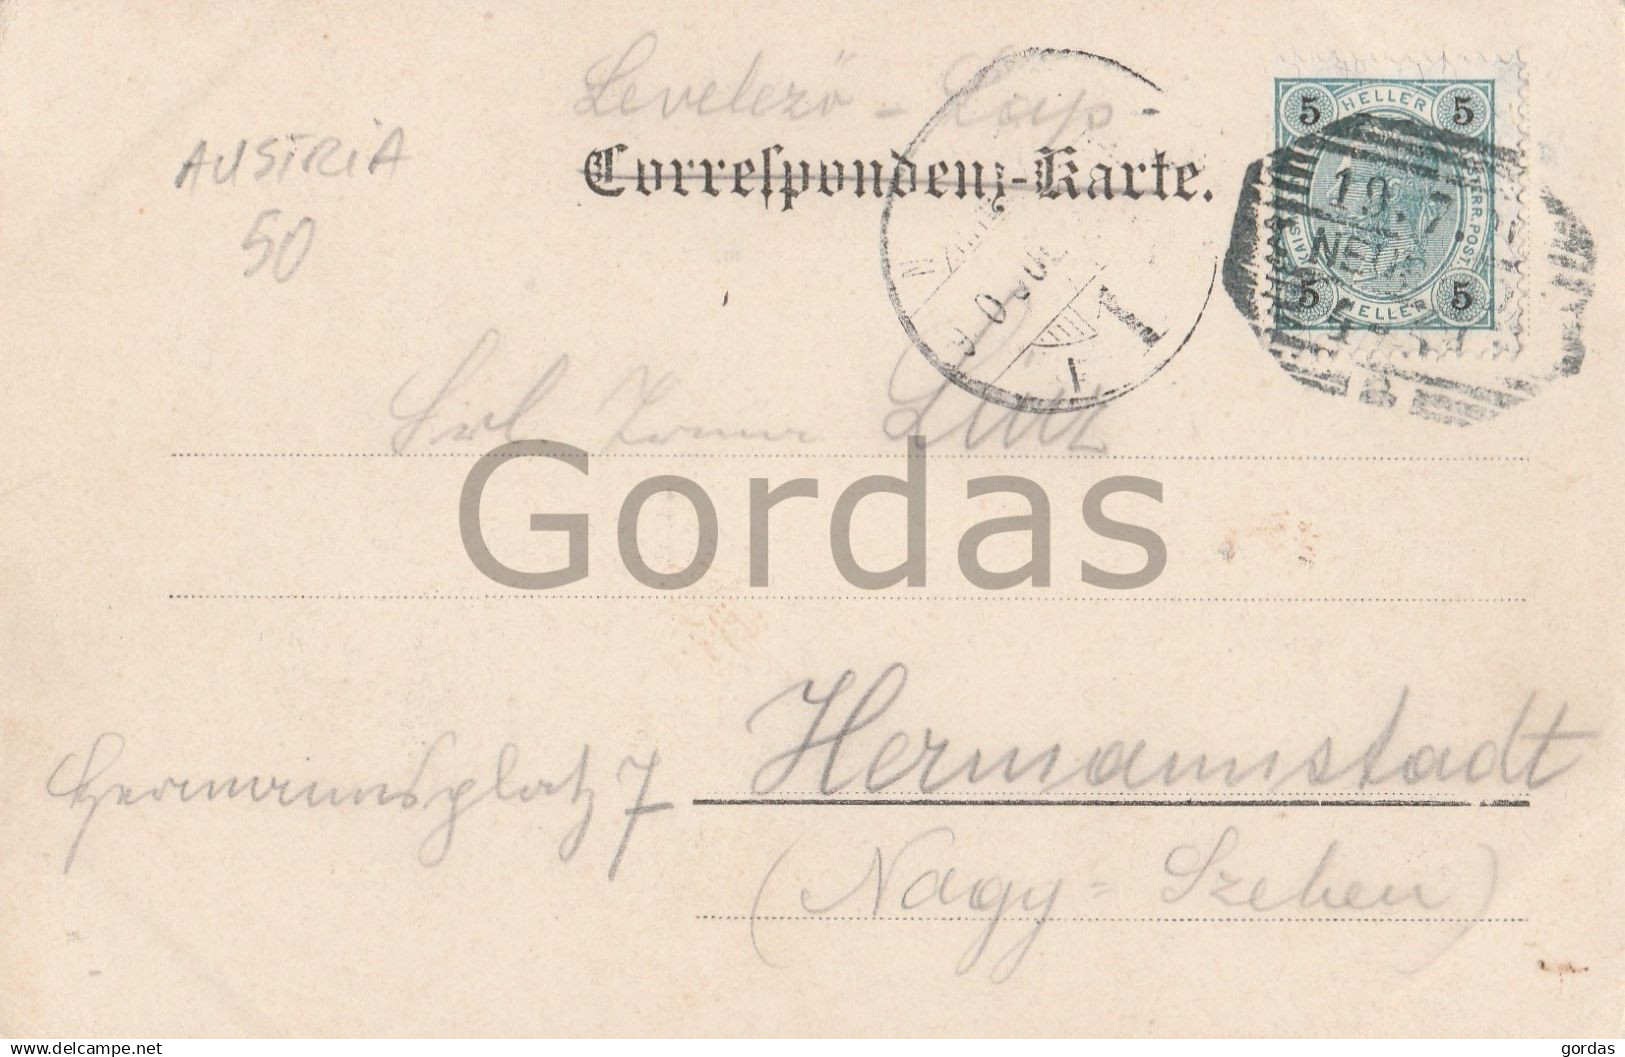 Levelező - Lap.
Correspondenz-Karte.
AUSTRIA
50
5 HELLER 5
KAIS
ÖSTERR. POST.
5 HELLER 5
19. 7.
NEU
1
Frl. Irma Lutz
Gordas
Hermannstadt
Hermannsplatz 7
(Nagy=Szeben)
delcampe.net
gordas